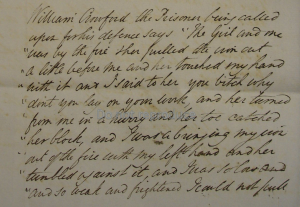 William Crawford the Prisoner being called
upon for his defence says "The Girl and me
was by the fire She pulled the iron out
a little before me and her touched my hand
with it and I said to her you bitch why
dont you lay on your work, and her turned
from me in a hurry and her toe catched
her block, and I was bringing my iron
out of the fire with my left hand and her
tumbled against it, and it was so low and
and so weak and frightened I could not pull